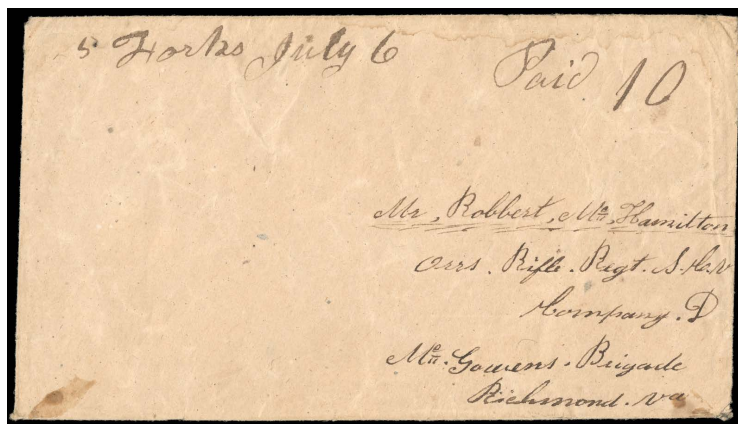 5 Forks July 6 Paid 10
Mr. Robbert. Mc. Hamilton
Orrs. Rifle. Regt. S. C. V
Company. D
Mc. Gowens. Brigade
Richmond. Va